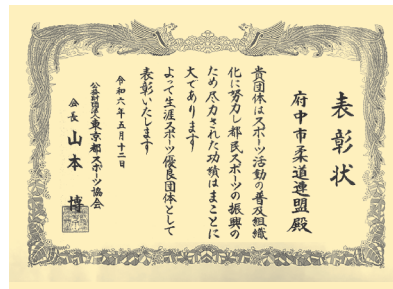 表彰状
府中市柔道連盟殿
貴団体はスポーツ活動の普及組織
化に努力し都民スポーツの振興の
ため尽力された功績はまことに
大であります
よって生涯スポーツ優良団体として
表彰いたします
令和六年五月十二日
公益財団法人東京都スポーツ協会
会長 山本 博